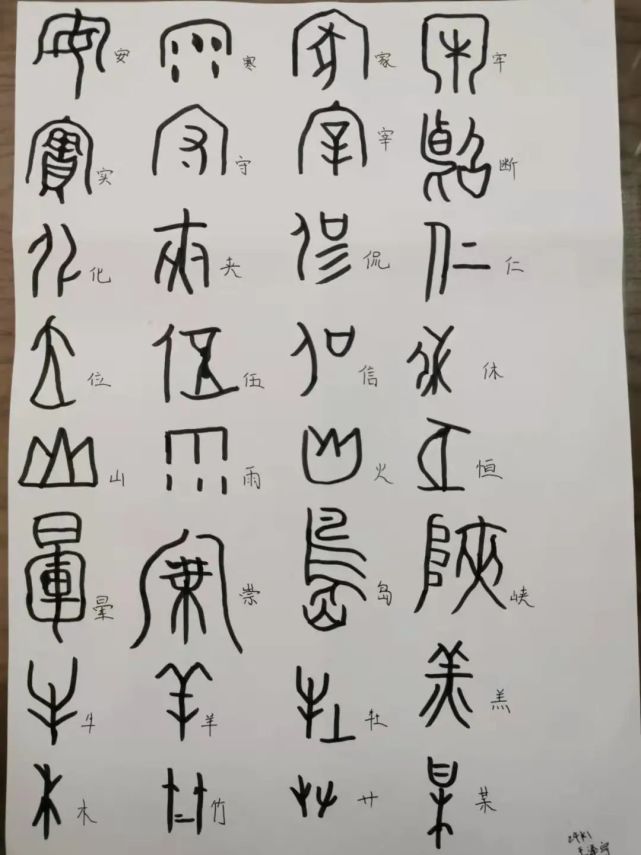 安 寒 家 牢
实 守 宰 断
化 夹 侃 仁
位 伍 信 休
山 雨 火 恒
晕 崇 岛 峡
牛 羊 牡 羔
木 竹 艹 某